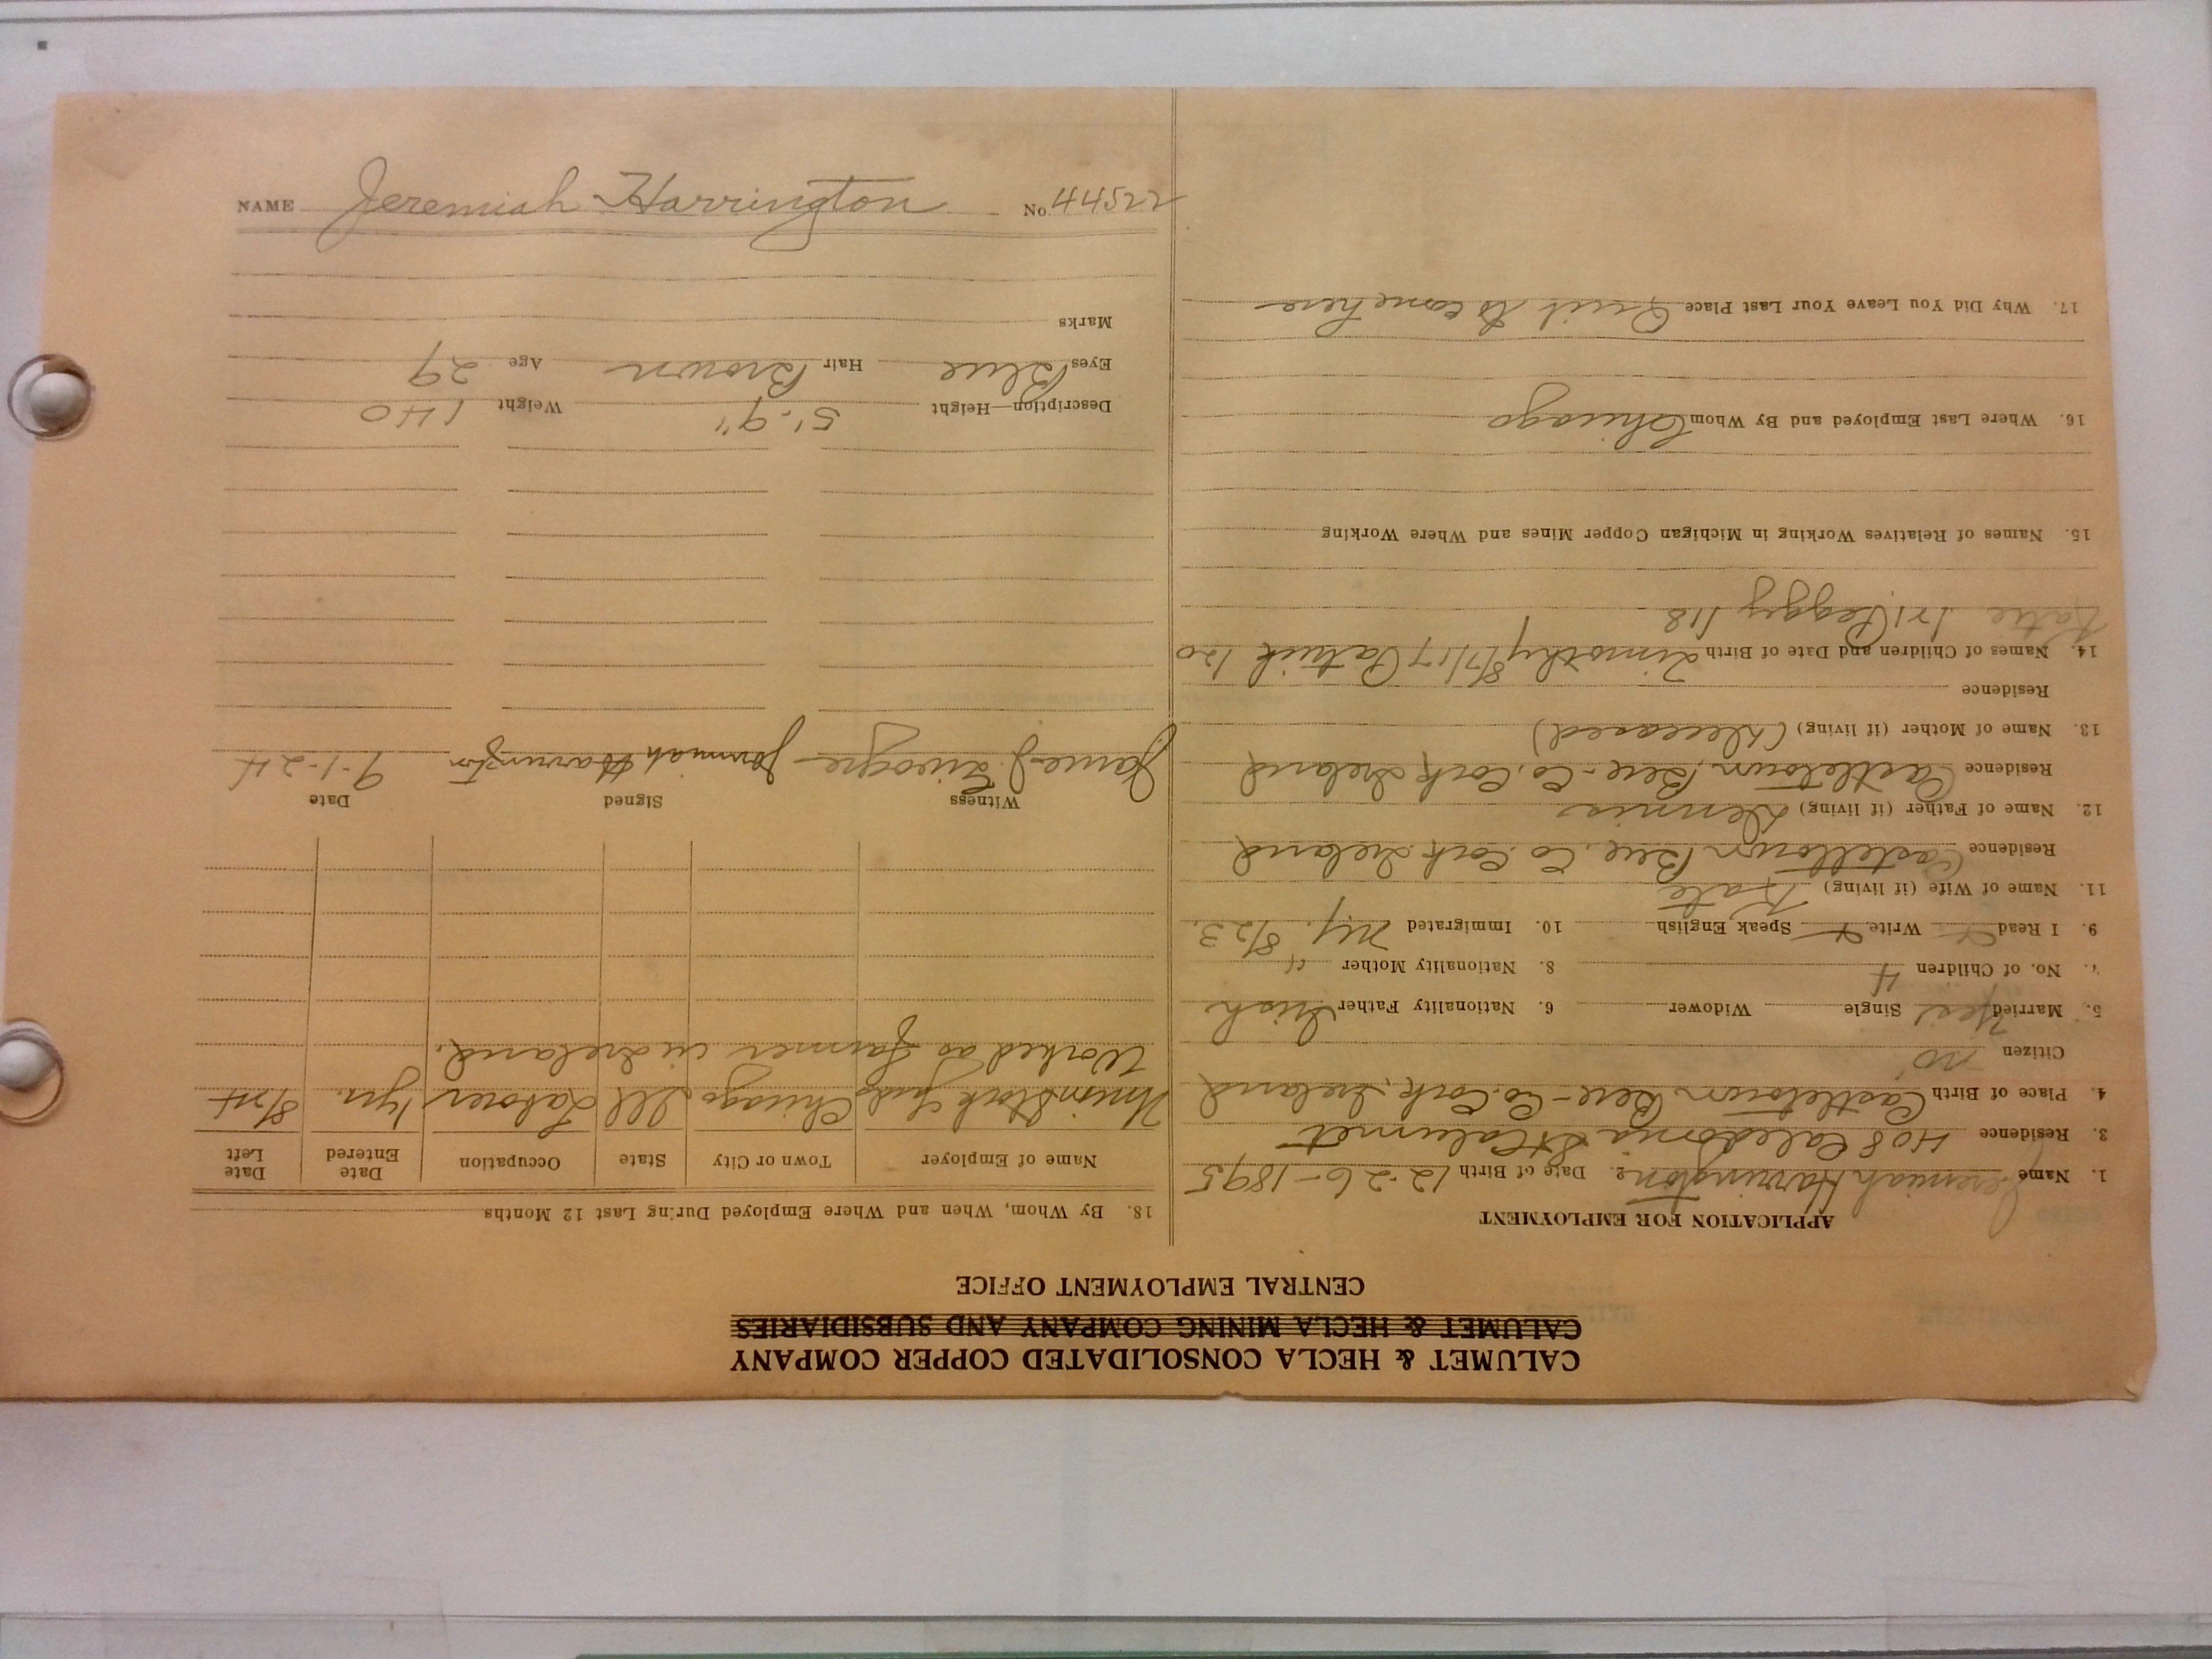 CALUMET & HECLA CONSOLIDATED COPPER COMPANY
CALUMET & HECLA MINING COMPANY AND SUBSIDIARIES
CENTRAL EMPLOYMENT OFFICE
APPLICATION FOR EMPLOYMENT
1. Name Jeremiah Harrington 2. Date of Birth 12-26-1895
3. Residence 408 Caledonia St Calumet
4. Place of Birth Castletown Bere-Co. Cork, Ireland
Citizen no
5. Married Yes Single Widower 6. Nationality Father Irish
7. No. of Children 4 8. Nationality Mother "
9. I Read Write Speak English 10. Immigrated N.Y. 8/23.
11. Name of Wife (if living) Kate
Residence Castletown Bere, Co. Cork Ireland
12. Name of Father (if living) Dennis
Residence Castletown, Bere-Co. Cork Ireland
13. Name of Mother (if living) (Deceased)
Residence
14. Names of Children and Date of Birth Timothy 8/7/17 Patrick 1/20
Katie 1/21 Peggy 1/18
15. Names of Relatives Working in Michigan Copper Mines and Where Working
16. Where Last Employed and By Whom Chicago
17. Why Did You Leave Your Last Place Quit to come here
18. By Whom, When and Where Employed During Last 12 Months
Name of Employer Town or City State Occupation Date Entered Date Left
Union Stock Yards Chicago Ill Laborer 1 yr. 8/24
Worked as farmer in Ireland.
Witness Signed Date
James J. Jeremiah Harrington 9-1-24
Description—Height 5'-9" Weight 140
Eyes Blue Hair Brown Age 29
Marks
NAME Jeremiah Harrington No. 44522